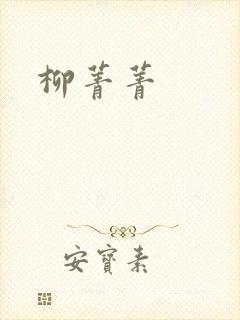 柳菁菁
安寳素